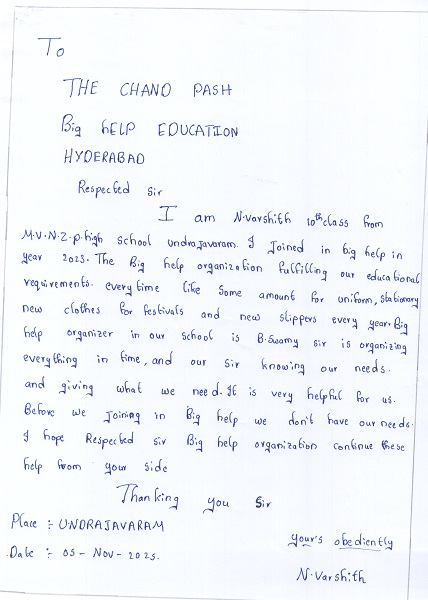 To
THE CHAND PASH
Big hELP EDUCATION
HYDERABAD
Respected sir
I am N.varshith 10th class from
M.V.N.Z.p.high school undrajavaram. I Joined in big help in
year 2023. The Big help organization fulfilling our educational
requirements. everytime like some amount for uniform, stationary
new clothes for festivals and new slippers every year. Big
help organizer in our school is B.Swamy sir is organizing
everything in time, and our sir knowing our needs.
and giving what we need. It is very helpful for us.
Before we Joining in Big help we don't have our needs.
I hope Respected sir Big help organization continue these
help from your side
Thanking you Sir
Place :- UNDRAJAVARAM
your's obediently
Date :- 05 - Nov - 2025.
N.Varshith